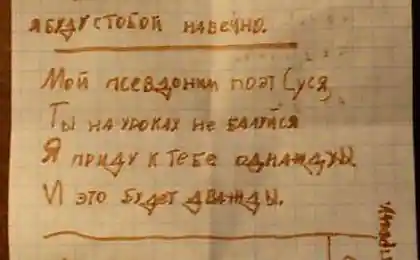 я буду с тобой навечно.
Мой псевдоним поэт Суся,
Ты на уроках не балуйся
Я приду к тебе однажды.
И это будет дважды.